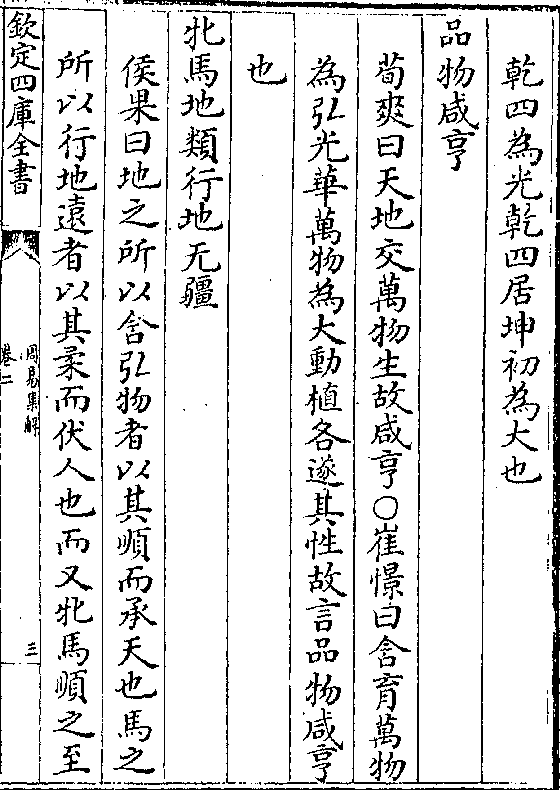 乾四為光乾四居坤初為大也
品物咸亨
荀爽曰天地交萬物生故咸亨○崔憬曰含育萬物
為弘光華萬物為大動植各遂其性故言品物咸亨
也
牝馬地類行地无疆
侯果曰地之所以含弘物者以其順而承天也馬之
所以行地遠者以其柔而伏人也而又牝馬順之至
欽定四庫全書
周易集解
卷二
三